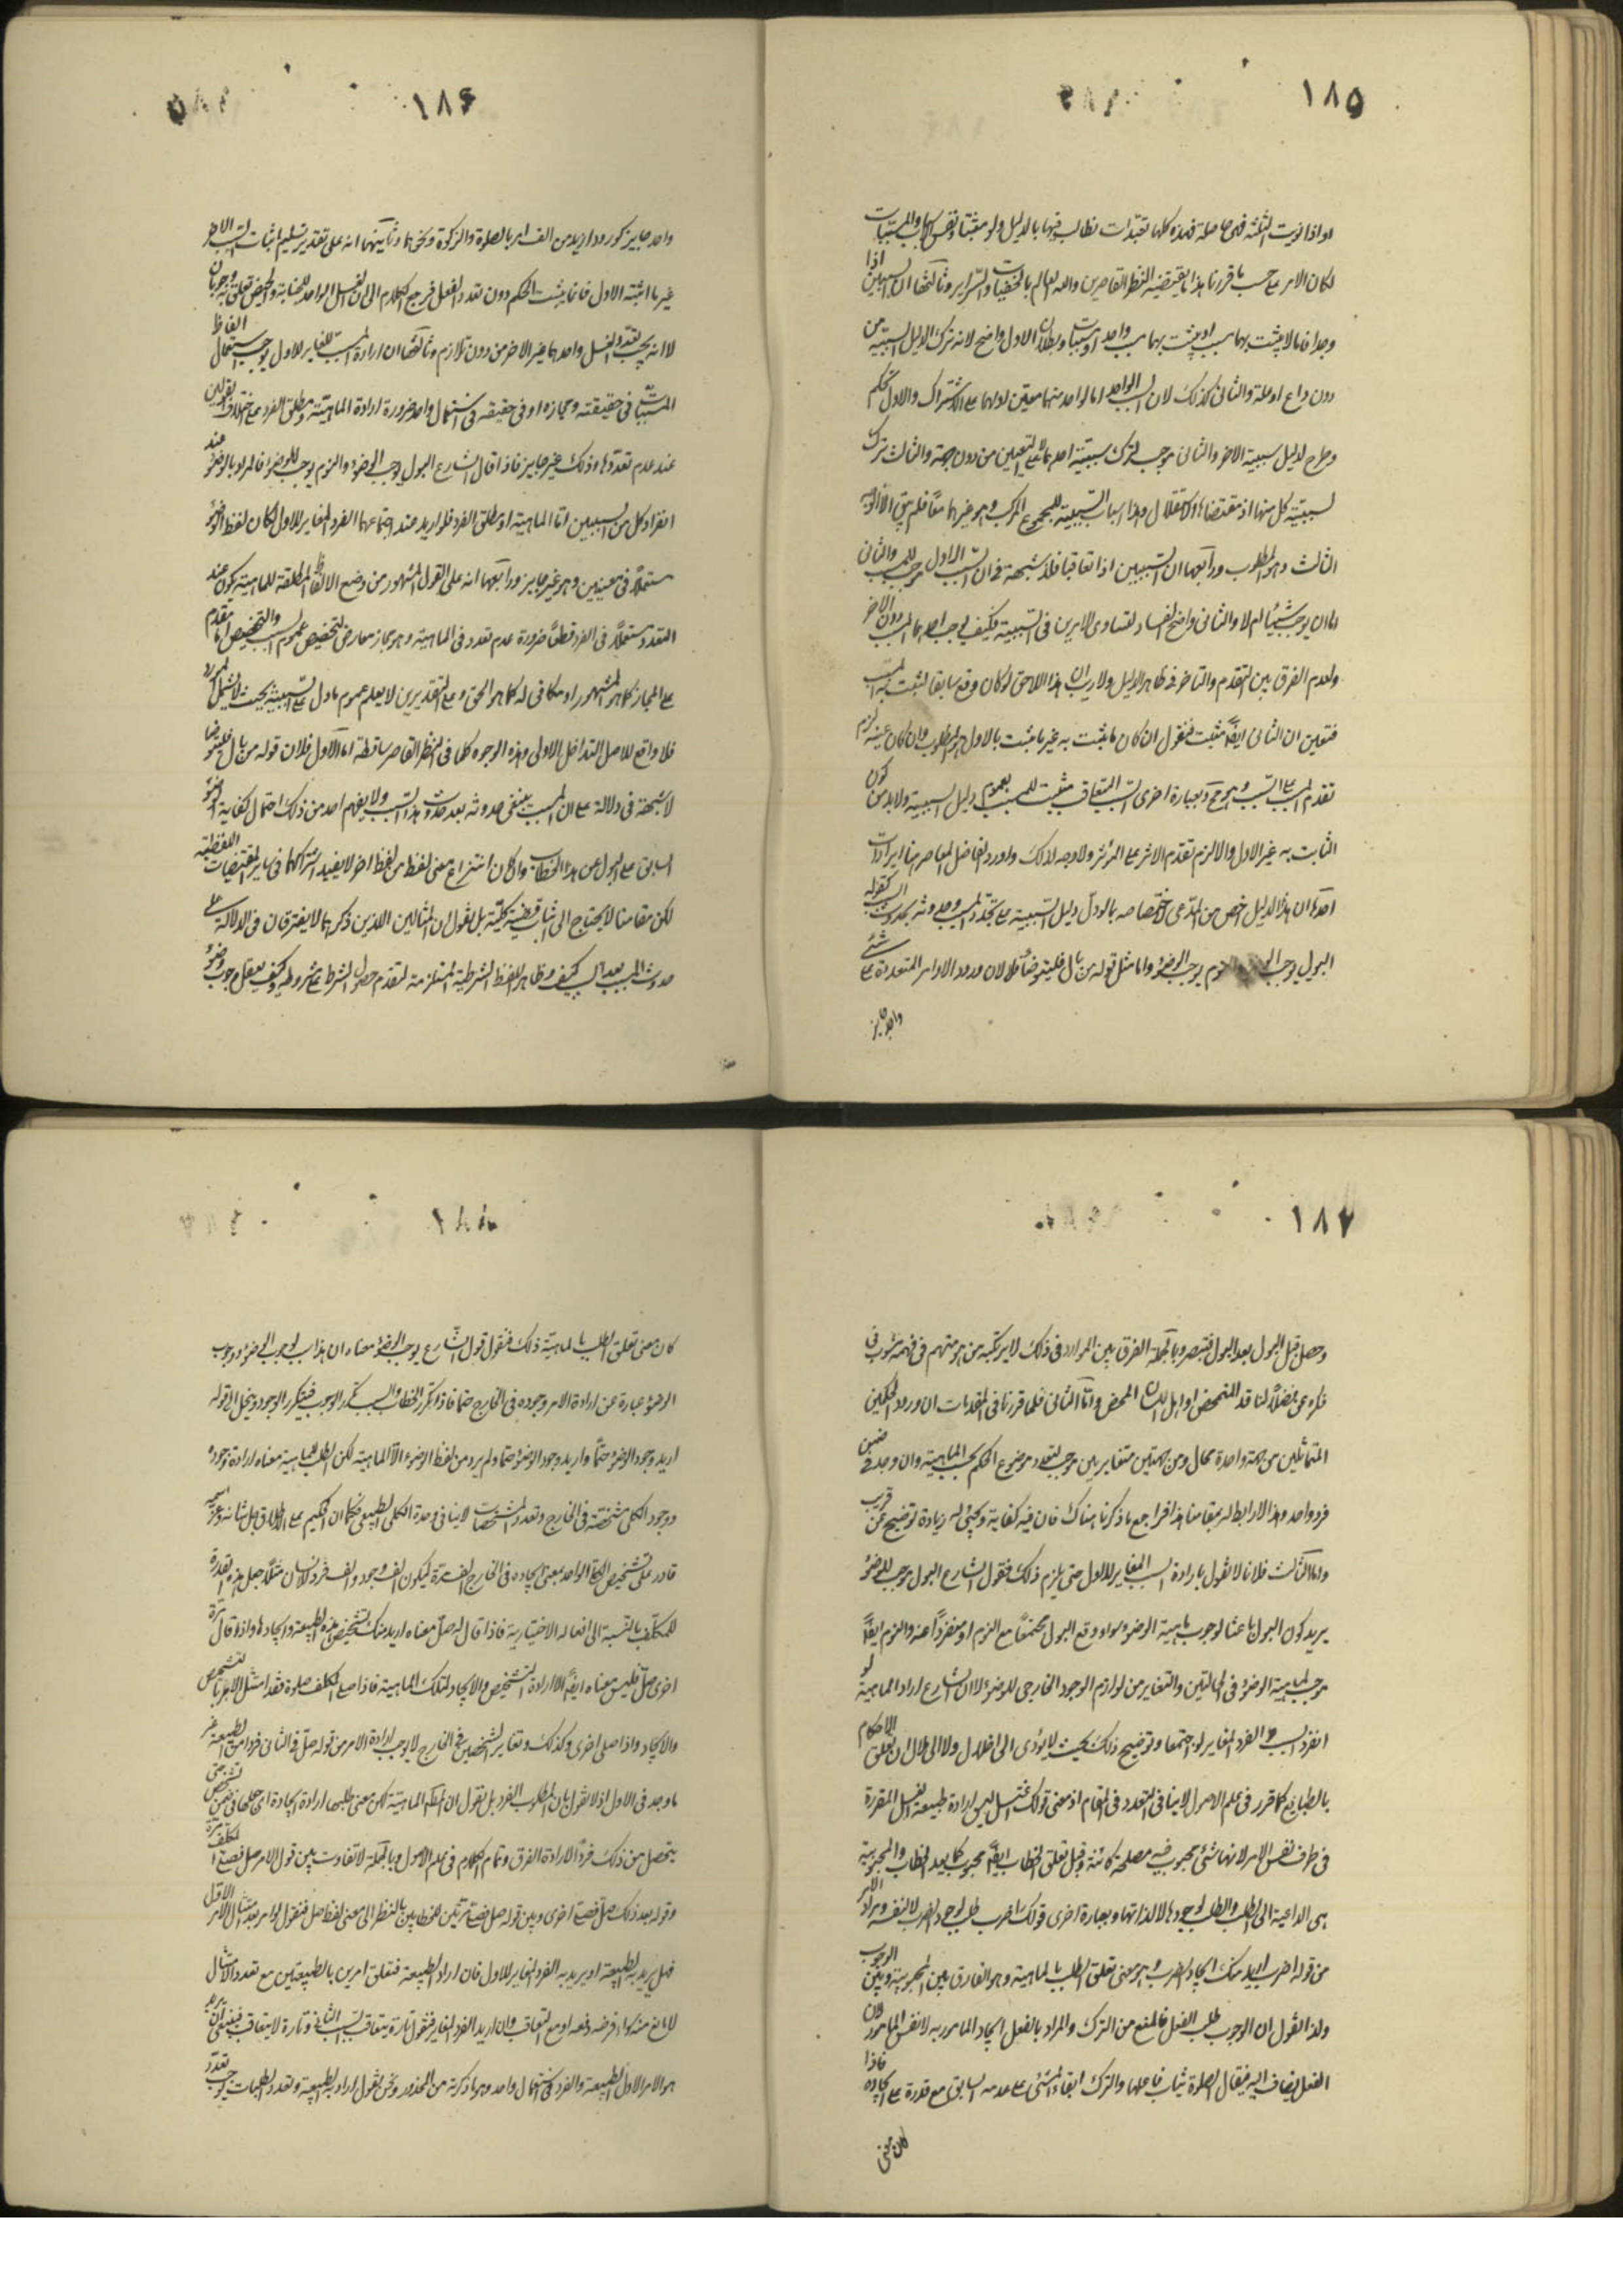 ١٨٥
او اذا نويت الثلثة فهى حاصلة فهذه كلها تعبدات نطالب فيها بالدليل ولو مثبتا
لكان الامر على حسب ما قررنا هذا ما يقتضيه النظر القاصرين والله العالم بالخفيات والسراير وثالثها ان السببين اذا
وجدا فاما لا يثبت بهما سبب او يثبت بهما سبب واحد او سببات وبطلان الاول واضح لانه ترك الدليل السببية من
دون داع او علة والثانى كذلك لان السبب الواحد اما لواحد منهما معين او لهما على الاشتراك والاول تحكم
وطرح لدليل سببية الاخر والثانى موجب لترك سببية احدهما على التعيين من دون جهة والثالث ترك
لسببية كل منهما اذ مقتضاها الاستقلال وهذا اسباب السببية للمجموع المركب وهو غيرهما معا فلم يبق الا الوجه
الثالث وهو المطلوب ورابعها ان السببين اذا تعاقبا فلا شبهة فى ان السبب الاول موجب للمسبب والثانى
اما ان يوجب شيئا ام لا والثانى واضح الفساد لتساوى الامرين فى السببية فكيف يوجب احدهما المسبب دون الاخر
ولعدم الفرق بين المتقدم والمتاخر فى ظاهر الدليل ولا ريب ان هذا اللاحق لو كان وقع سابقا لثبت به المسبب
فتعين ان الثانى ايضا مثبت فنقول ان كان ما يثبت به غير ما يثبت بالاول فهو المطلوب وان كان عينه لزم
تقدم المسبب على السبب وبعبارة اخرى السبب المتعاقب مثبت للمسبب بعموم دليل السببية ولا بد من كون
الثابت به غير الاول والا لزم تقدم الاثر على المؤثر ولا وجه لذلك واورد الفاضل المعاصر هنا ايرادات
احدها ان هذا الدليل اخص من المدعى لاختصاصه بما لو دل دليل السببية على تجدد المسبب وحدوثه بحدوث السبب كقوله
البول يوجب الوضوء والنوم يوجب الوضوء واما مثل قوله من بال فليتوضأ فلا لان ورود الاوامر المتعددة على شئ
واحد جايز
١٨۶
واحد جايز كورود ازيد من الف امر بالصلوة والزكوة ونحوهما وثانيتهما انه على تقدير تسليم اثبات السبب الاخر
غير ما اثبته الاول فانما يثبت الحكم دون تعدد الفعل فرجع الكلام الى ان الغسل الواحد للجنابة والحيض تعلق به وجوبان
لا انه يجب تعدد الغسل واحدهما غير الاخر من دون تلازم وثالثها ان ارادة المسبب المغاير للاول يوجب استعمال الفاظ
المسببات فى حقيقته ومجازه او فى حقيقته فى استعمال واحد ضرورة ارادة الماهية ومطلق الفرد على اختلاف القولين
عند عدم تعددها وذلك غير جايز فاذا قال الشارع البول يوجب الوضوء والنوم يوجب الوضوء فالمراد بالوضوء عند
انفراد كل من السببين اما الماهية او مطلق الفرد فلو اريد عند اجتماعهما الفرد المغاير للاول لكان لفظ الوضوء
مستعملا فى معنيين وهو غير جايز ورابعها انه على القول المشهور من وضع الالفاظ المطلقة للماهية يكون عند
التعدد مستعملا فى الفرد قطعا ضرورة عدم تعدد فى الماهية وهو مجاز معارض لتخصيص عموم السبب والتخصيص اما مقدم
على المجاز كما هو المشهور او مكافئ له كما هو الحق وعلى التقديرين لا يعلم عموم ما دل على السببية بحيث لا يشتمل المورد
فلا دافع للاصل التداخل الاولى وهذه الوجوه كلها فى النظر القاصر ساقطة اما الاول فلان قوله من بال فليتوضا
لا شبهة فى دلالة على ان المسبب ينبغى حدوثه بعد حدوث هذا السبب ولا يفهم احد من ذلك احتمال كفاية الوضوء
السابق على البول عن هذا الخطاب وان كان انتزاع معنى لفظ من لفظ اخر لا يفيد اشتراكهما فى ساير المقتضيات اللفظية
لكن مقامنا لا يحتاج الى اثبات قضية كلية بل نقول ان المثالين اللذين ذكرهما لا يفترقان فى الدلالة على
حدوث المسبب بعد السبب كيف وظاهر اللفظ الشرطية المستلزمة لتقدم حصول الشرط على مشروطه وكيف يعقل وجوب وضوء
١٨٧
وحصل قبل البول بعد البول فتبصر وبالجملة الفرق بين الموارد فى ذلك لا يرتكبه من هو متهم فى فهمه مشوب فى
فكره عن فضلا لنا قد المتمحض واهل اللسان المحض واما الثانى فلما قررنا فى المقدمات ان ورود الحكمين
المتماثلين من جهة واحدة محال ومن الجهتين متغايرين موجب لتعدد موضوع الحكم بحسب الماهية وان وجد فى ضمن
فرد واحد وهذا لا ربط له بمقامنا هذا فراجع ما ذكرنا هناك فان فيه كفاية ويجئ له زيادة توضيح عن قريب
واما الثالث فلانا لا نقول بارادة السبب المغاير للاول حتى يلزم ذلك فقول الشارع البول موجب للوضوء
يريد كون البول باعثا لوجوب ماهية الوضوء سواء وقع البول مجتمعا مع النوم او منفردا عنه والنوم ايضا
موجب لماهية الوضوء فى الحالتين والتغاير من لوازم الوجود الخارجى للوضوء لا ان الشارع اراد الماهية لو
انفرد السبب والفرد المغاير لو اجتمعا وتوضيح ذلك بحيث لا يؤدى الى اخلال ولا الى ملال ان تعلق الاحكام
بالطبايع كما قرر فى علم الاصول لا ينافى التعدد فى المقام اذ معنى قولك اغتسل ليس ارادة طبيعة الغسل المقررة
فى ظرف نفس الامر لانها شئ محبوب فيه مصلحة كائنة وقبل تعلق الخطاب ايضا محبوب كما بعد الخطاب والمحبوبية
هى الداعية الى الطلب والطلب لوجودها لا لذاتها وبعبارة اخرى قولك اضرب طلب لوجود الضرب لا لنفسه ومراد الامر
من قوله اضرب اريد منك ايجاد الضرب وهو معنى تعلق الطلب بالماهية وهو الفارق بين المحبوبية وبين الوجوب
ولذا القول ان الوجوب طلب الفعل فالمنع من الترك والمراد بالفعل ايجاد المامور به لا نفس المامور لان
الفعل يضاف اليه فيقال الصلوة يثاب فاعلها والترك ابقاء الشئ على عدمه السابق مع قدرة على ايجاده فاذا
كان معنى
١٨٨
كان معنى تعلق الطلب بالماهية ذلك فنقول قول الشارع يوجب الوضوء معناه ان هذا سبب لوجوب الوضوء ووجوب
الوضوء عبارة عن ارادة الامر وجوده فى الخارج حتما فاذا تكرر الخطاب والسبب تكرر الوجوب فيتكرر الوجود وينحل الى قوله
اريد وجود الوضوء حتما واريد وجود الوضوء حتما ولم يرد من لفظ الوضوء الا الماهية لكن الطلب للماهية معناه ارادة وجوده
ووجود الكلى متشخصة فى الخارج وتعدد المشخصات لا ينافى وحدة الكلى الطبيعى فكما ان الحكيم على الاطلاق جل شانه وعز اسمه
قادر على تشخيص الكلى الواحد بمعنى ايجاده فى الخارج الف مرة فيكون الف وجود والف فرد للانسان مثلا جعل هذه القدرة
للمكلف بالنسبة الى افعاله الاختيارية فاذا قال له صل معناه اريد منك تشخيص هذه الطبيعة وايجادها واذا قال مرة
اخرى صل فليس معناه ايضا الا ارادة التشخيص والايجاد لتلك الماهية فاذا صلى المكلف صلوة فقد امتثل الامر بالتشخص
والايجاد واذا صلى اخرى وكذلك وتغاير الشخصين فى الخارج لا يوجب ارادة الامر من قوله صل فى الثانى فردا من الطبيعة غير
ما وجد فى الاول اذ لا نقول بان المطلوب الفرد بل نقول ان المطلوب الماهية لكن معنى طلبها ارادة ايجادة اى جعلها فى ضمن الشخص حتى
يتحصل من ذلك فرد الارادة الفرق وتمام الكلام فى علم الاصول وبالجملة لا تفاوت بين قول الامر صل فصلى المكلف مرة
وقوله بعد ذلك صل فصلى اخرى وبين قوله صل فصلى مرتين للخطابين بالنظر الى معنى لفظ صل فنقول لو امر بعد امتثال الامر الاول
فهل يريد به الطبيعة او يريد به الفرد المغاير للاول فان اراد الطبيعة فتعلق امرين بالطبيعتين مع تعدد الامتثال
لا مانع منه سواء فرضه دفعة او مع التعاقب وان اريد الفرد المغاير فنقول تارة يتعاقب السبب الثانى وتارة لا يتعاقب فينبغى ان يريد
هو الامر الاول الطبيعة والفرد فى استعمال واحد وهو ما ذكرته من المحذور ونحن نقول اراد به الطبيعة وتعدد الطلبات يوجب تعدد